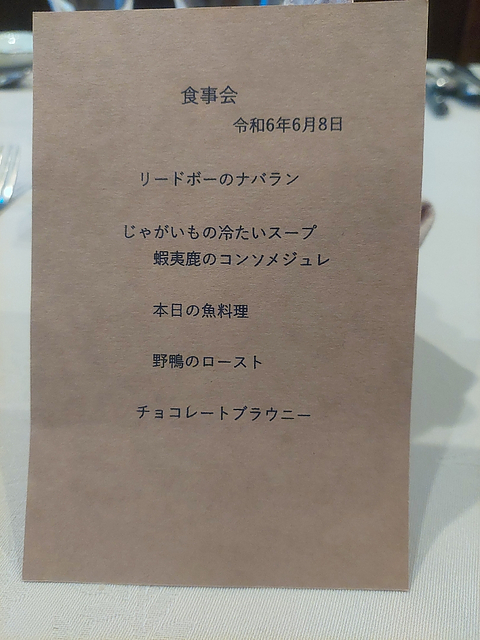 食事会
令和6年6月8日
リードボーのナバラン
じゃがいもの冷たいスープ
蝦夷鹿のコンソメジュレ
本日の魚料理
野鴨のロースト
チョコレートブラウニー